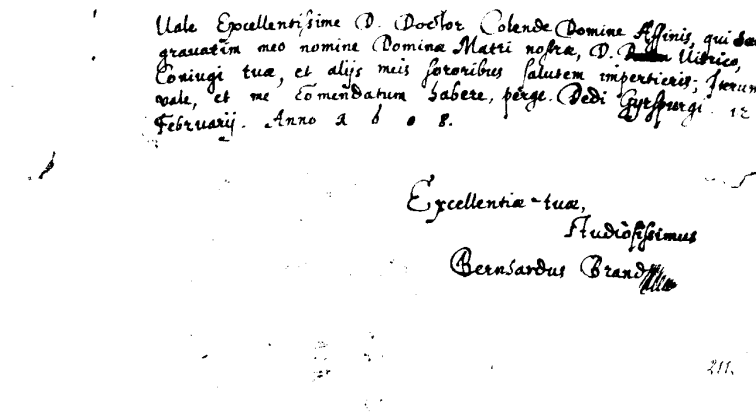 Vale Excellentissime D. Doctor Colende Domine Affinis, qui
gravatim meo nomine Dominæ Matri nostræ, D. Vitrico,
Coniugi tuæ, et alijs meis sororibus salutem impertieris; Iterum
vale, et me Comendatum habere, perge. Dedi Gyrspurgi. 12
Februarij. Anno 1 6 0 8.
Excellentiæ tuæ,
studiosissimus
Bernhardus Brand
211.